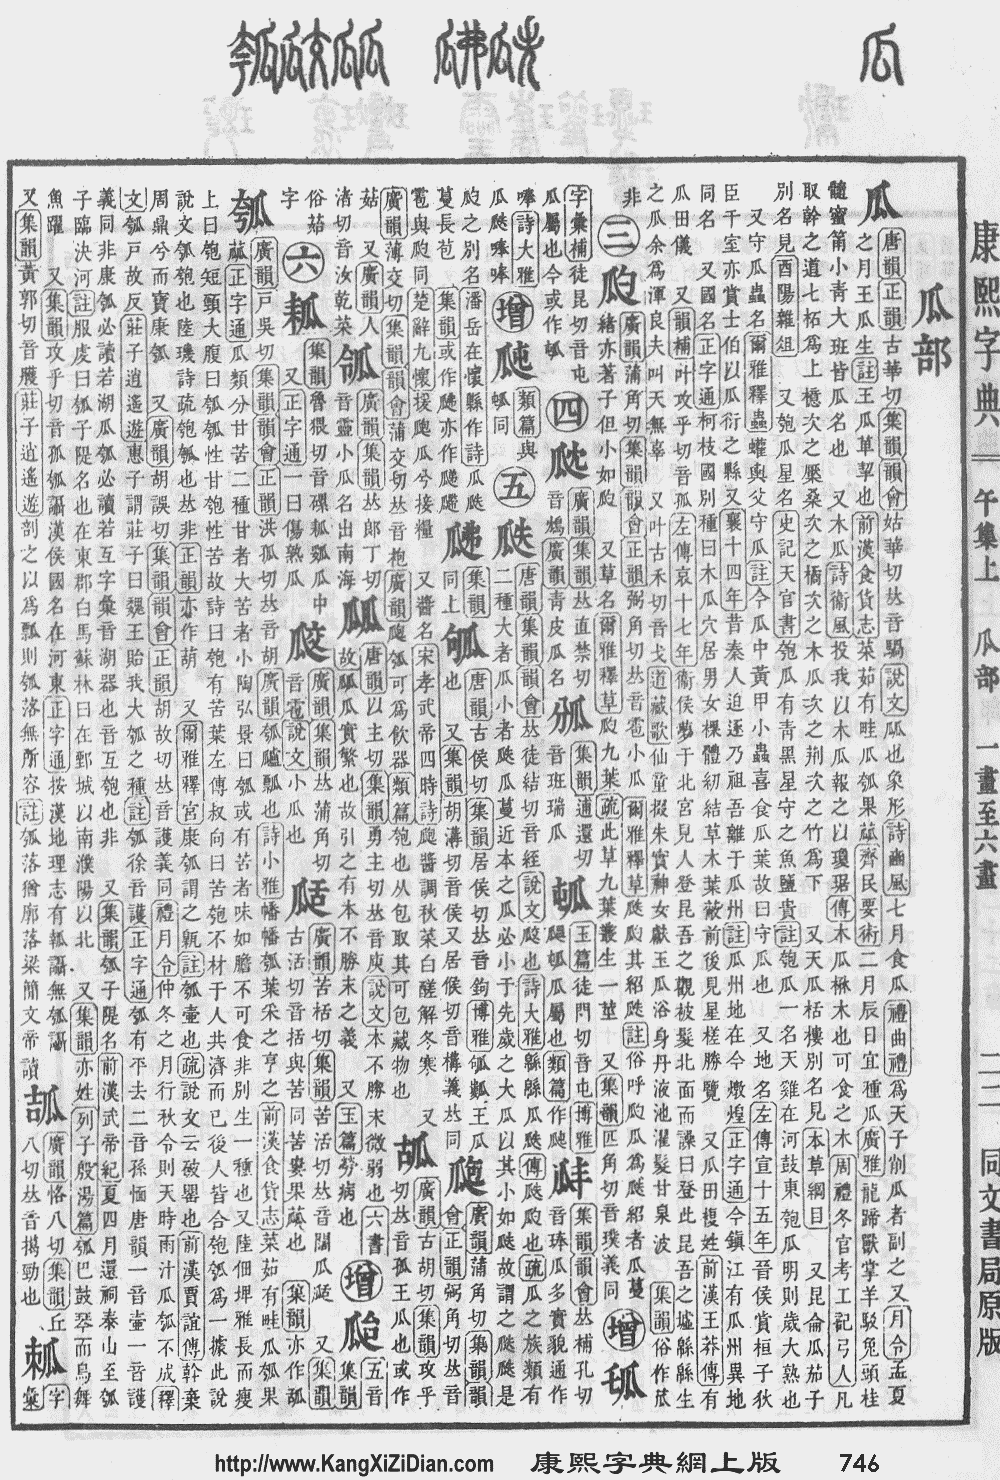 康熙字典 午集上 瓜部 一畫至六畫 二二 同文書局原版
瓜部
瓜 唐韻正韻古華切集韻韻會姑華切𠀤音騧說文㼌也象形詩豳風七月食瓜禮曲禮爲天子削瓜者副之又月令孟夏
之月王瓜生註王瓜草挈也前漢食貨志菜茹有畦瓜瓠果蓏齊民要術二月辰日宜種瓜廣雅龍蹄獸掌羊駮兔頭桂
髓蜜筩小靑大班皆瓜名也 又木瓜詩衞風投我以木瓜報之以瓊琚傳木瓜楙木也可食之木周禮冬官考工記弓人凡
取幹之道七柘爲上檍次之檿桑次之橘次之木瓜次之荆次之竹爲下 又天瓜栝樓別名見本草綱目 又昆侖瓜茄子
別名見酉陽雜俎 又匏瓜星名史記天官書匏瓜有靑黑星守之魚鹽貴註匏瓜一名天雞在河鼓東匏瓜明則歲大熟也
又守瓜蟲名爾雅釋蟲蠸輿父守瓜註今瓜中黃甲小蟲喜食瓜葉故曰守瓜也 又地名左傳宣十五年晉侯賞桓子狄
臣千室亦賞士伯以瓜衍之縣又襄十四年昔秦人迫逐乃祖吾離于瓜州註瓜州地在今燉煌正字通今鎭江有瓜州異地
同名 又國名正字通柯枝國別種曰木瓜穴居男女裸體紉結草木葉蔽前後見星槎勝覽 又瓜田複姓前漢王莽傳有
瓜田儀 又韻補叶攻乎切音孤左傳哀十七年衞侯夢于北宮見人登昆吾之觀被髮北面而譟曰登此昆吾之墟緜緜生
之瓜余爲渾良夫叫天無辜 又叶古禾切音戈道藏歌仙童掇朱實神女獻玉瓜浴身丹液池濯髮甘泉波 集韻俗作苽
非 三 瓝 廣韻蒲角切集韻韻會正韻弼角切𠀤音雹小瓜也爾雅釋草瓞瓝其紹瓞註俗呼瓝瓜爲瓞紹者瓜蔓
緒亦著子但小如瓝 又草名爾雅釋草瓝九葉疏此草九葉叢生一莖 又集韻匹角切音璞義同 增
字彙補徒昆切音屯瓜屬也今或作 四 廣韻集韻𠀤直禁切音鴆廣韻靑皮瓜名
集韻逋還切音班瑞瓜
玉篇徒門切音屯博雅 瓜屬也類篇作
集韻韻會𠀤補孔切音琫瓜多實貌通作唪詩大雅瓜瓞唪唪
增 類篇與 同
五 瓞 唐韻集韻韻會𠀤徒結切音絰說文㼎也詩大雅緜緜瓜瓞傳瓞瓝也疏瓜之族類有
二種大者瓜小者瓞瓜蔓近本之瓜必小于先歲之大瓜以其小如瓝故謂之瓞瓞是
瓝之別名潘岳在懷縣作詩瓜瓞蔓長苞 集韻或作 亦作
集韻同上
唐韻古侯切集韻居侯切𠀤音鉤博雅 王瓜也 又集韻胡溝切音侯又居候切音構義𠀤同
廣韻蒲角切集韻韻會正韻弼角切𠀤音雹與瓝同楚辭九懷援瓟瓜兮接糧 又醬名宋孝武帝四時詩瓟醬調秋菜白醝解冬寒 又
廣韻薄交切集韻韻會蒲交切𠀤音袍廣韻瓟瓠可爲飮器類篇匏也从包取其可包藏物也
廣韻古胡切集韻攻乎切𠀤音孤王瓜也或作菇 又廣韻人渚切音汝乾菜
瓴 廣韻集韻𠀤郎丁切音靈小瓜名出南海
㼌 唐韻以主切集韻勇主切𠀤音庾說文本不勝末微弱也六書故㼌瓜實繁也故引之有本不勝末之義 又玉篇勞病也
增 集韻五音 俗菇字
六 集韻魯猥切音磥 瓜中 又正字通一曰傷熟瓜
㼎 廣韻集韻𠀤蒲角切音雹說文小瓜也
廣韻苦栝切集韻苦活切𠀤音闊瓜 又集韻古活切音括與苦同苦蔞果蓏也 集韻亦作
瓠 廣韻戸吳切集韻韻會正韻洪孤切𠀤音胡廣韻瓠 瓢也詩小雅幡幡瓠葉采之亨之前漢食貨志菜茹有畦瓜瓠果
蓏正字通瓜類分甘苦二種甘者大苦者小陶弘景曰瓠或有苦者味如膽不可食非別生一種也又陸佃埤雅長而瘦
上曰匏短頸大腹曰匏瓠性甘匏性苦故詩曰匏有苦葉左傳叔向曰苦匏不材于人共濟而已後人皆合匏瓠爲一據此說
說文瓠匏也陸璣詩疏匏瓠也𠀤非正韻亦作葫 又爾雅釋宮康瓠謂之甈註瓠壷也疏說文云破罌也前漢賈誼傳斡棄
周鼎兮而寶康瓠 又廣韻胡誤切集韻韻會正韻胡故切𠀤音護義同禮月令仲冬之月行秋令則天時雨汁瓜瓠不成釋
文瓠戸故反莊子逍遙遊惠子謂莊子曰魏王貽我大瓠之種註瓠徐音護正字通瓠有平去二音孫愐唐韻一音壷一音護
義同非康瓠必讀若湖瓜瓠必讀若互字彙音湖器也音互匏也非 又集韻瓠子隄名前漢武帝紀夏四月還祠泰山至瓠
子臨決河註服虔曰瓠子隄名也在東郡白馬蘇林曰在鄄城以南濮陽以北 又集韻亦姓列子殷湯篇瓠巴鼓琴而鳥舞
魚躍 又集韻攻乎切音孤瓡讘漢侯國名在河東正字通按漢地理志有瓡讘無瓠讘
又集韻黃郭切音臒莊子逍遙遊剖之以爲瓢則瓠落無所容註瓠落猶廓落梁簡文帝讀
廣韻恪八切集韻丘八切𠀤音揭勁也
字彙
http://www.KangXiZiDian.com 康熙字典網上版 746